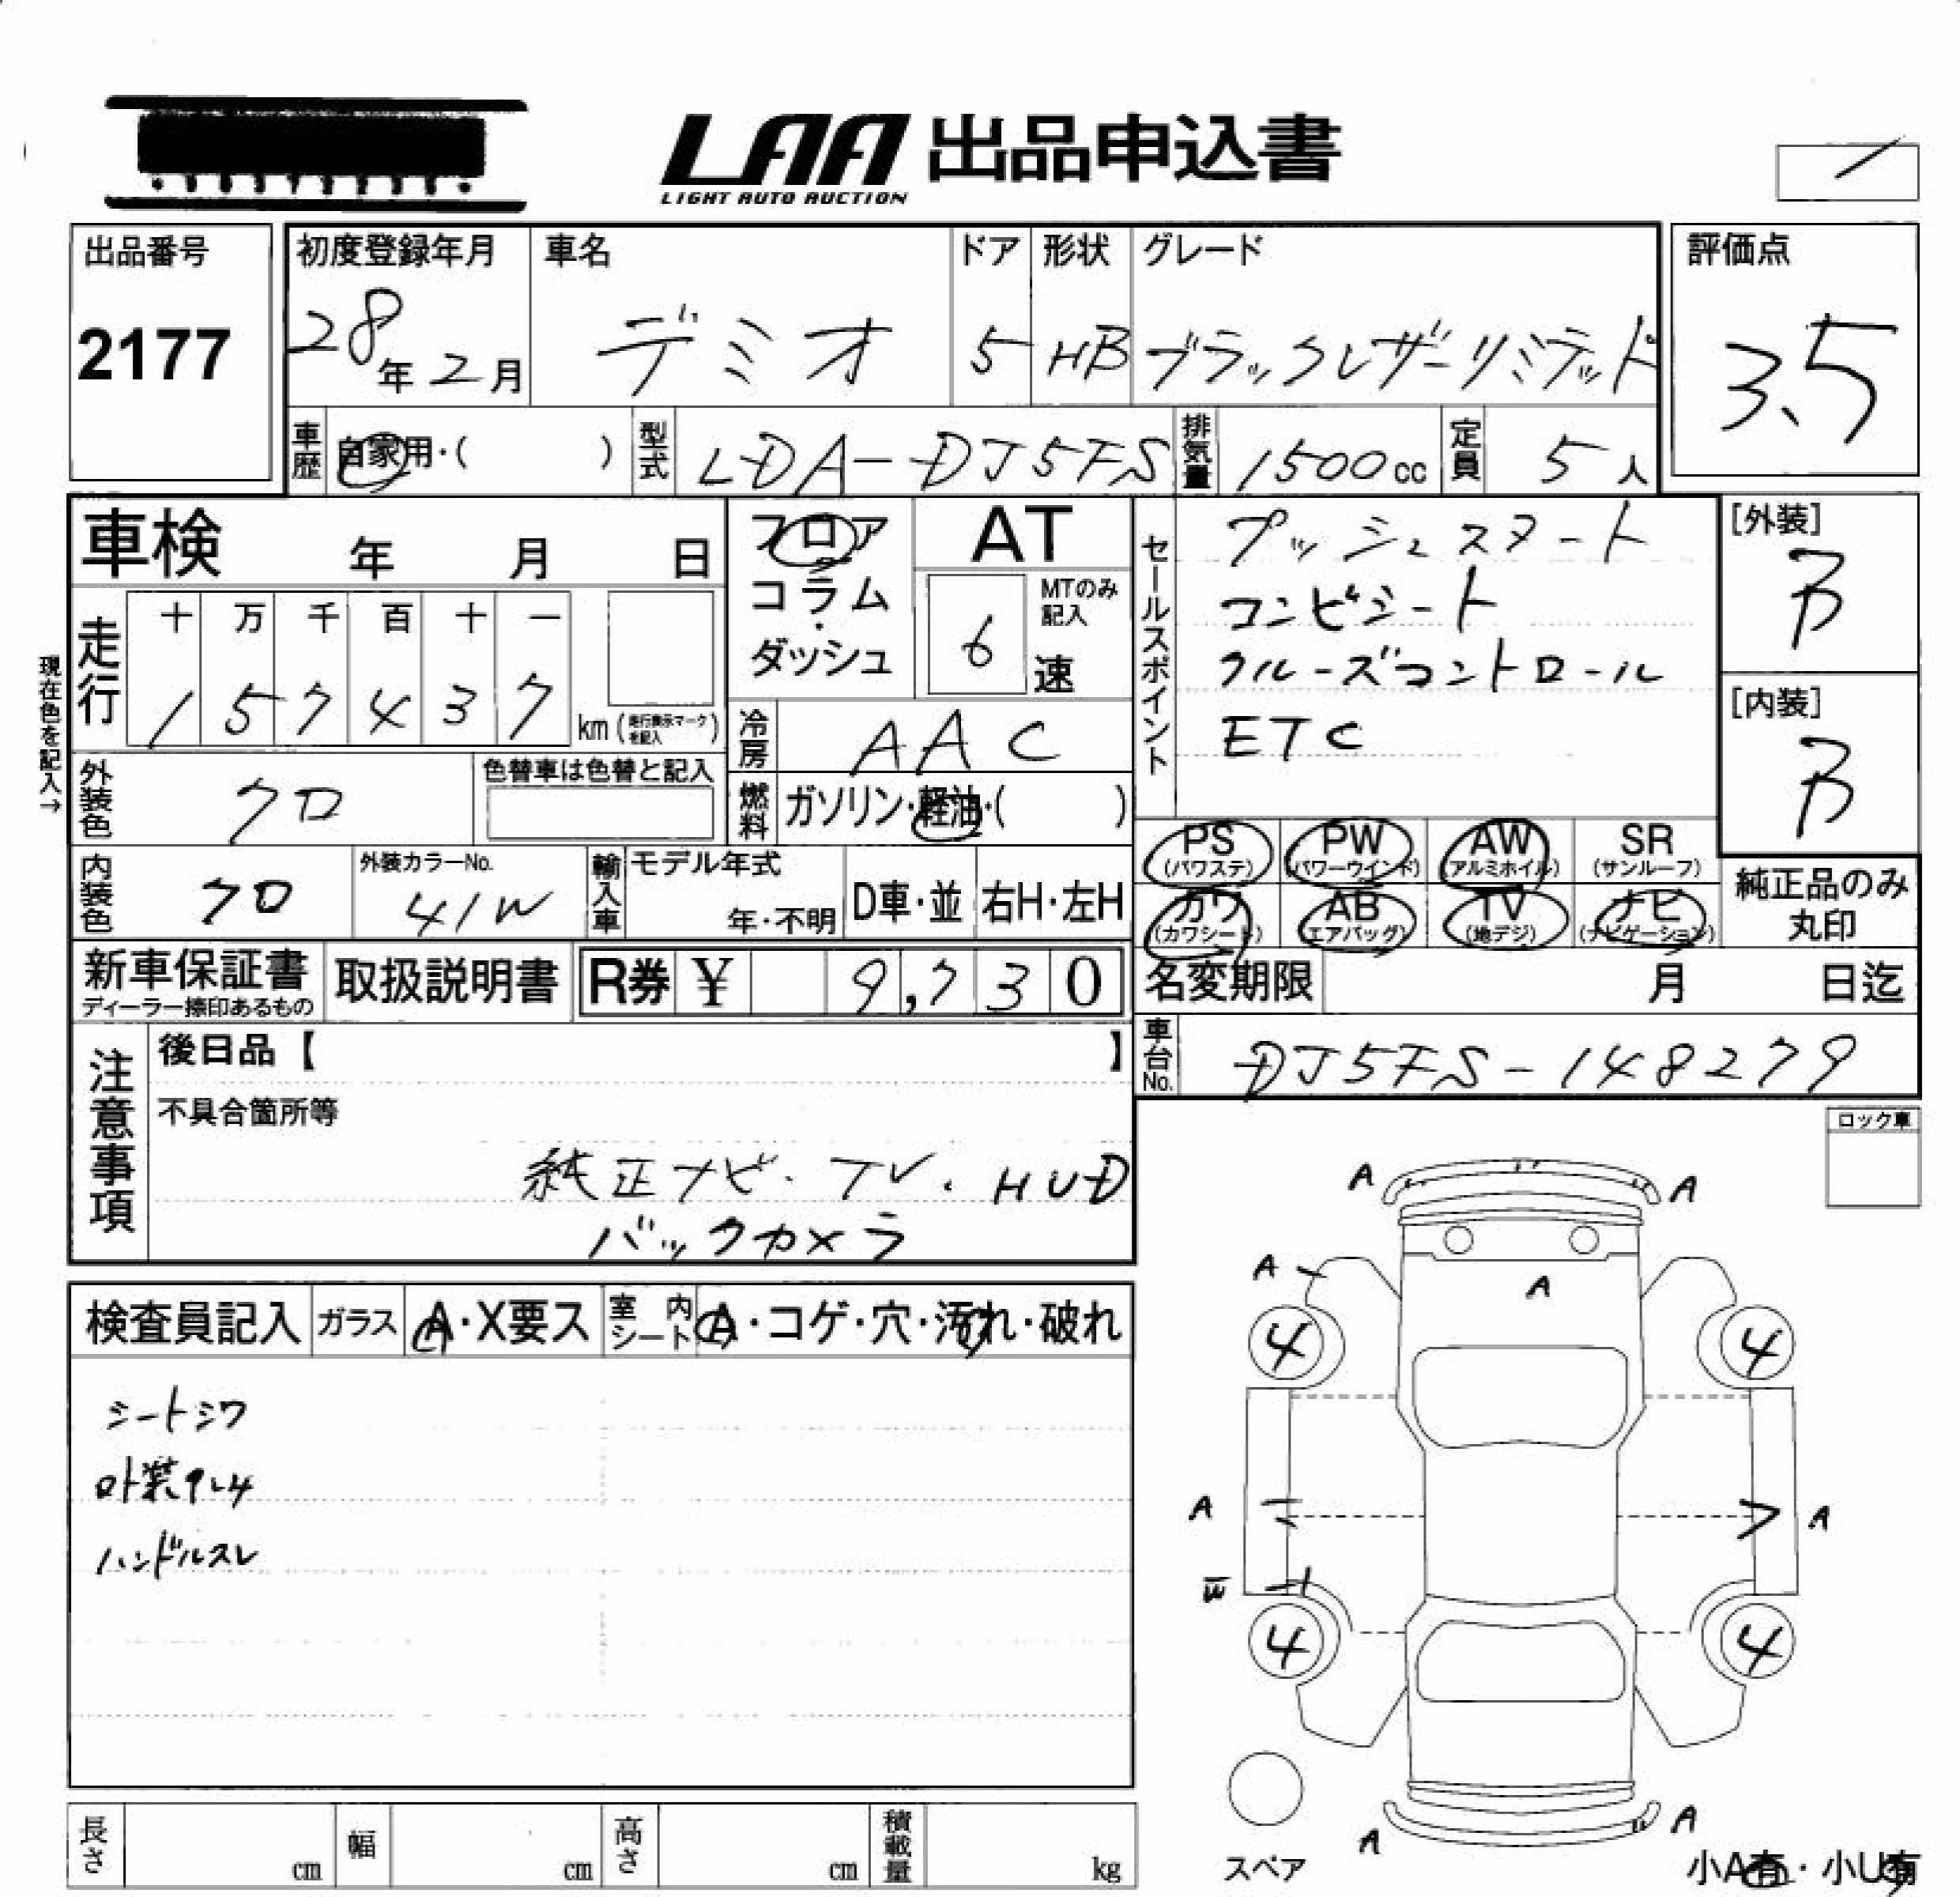 LAA 出品申込書
LIGHT AUTO AUCTION
出品番号
2177
初度登録年月
28年2月
車名
デミオ
ドア
5
形状
HB
グレード
ブラックレザーリミテッド
評価点
3.5
車歴
自家用・( )
型式
LDA-DJ5FS
排気量
1500cc
定員
5人
車検 年 月 日
現在色を記入→
走行
十 万 千 百 十 一
1 5 7 4 3 7
km (走行表示マークを記入)
外装色
クロ
色替車は色替と記入
内装色
クロ
外装カラーNo.
41W
輸入車
モデル年式
年・不明
D車・並
右H・左H
フロア
コラム
・
ダッシュ
AT
6
MTのみ記入
速
冷房
AAC
燃料
ガソリン・軽油・( )
セールスポイント
プッシュスタート
コンビシート
クルーズコントロール
ETC
[外装]
B
[内装]
B
PS (パワステ)
PW (パワーウインド)
AW (アルミホイル)
SR (サンルーフ)
カワ (カワシート)
AB (エアバッグ)
TV (地デジ)
ナビ (ナビゲーション)
純正品のみ丸印
新車保証書
ディーラー捺印あるもの
取扱説明書
R券 ¥ 9,730
名変期限 月 日迄
車台No.
DJ5FS-148279
注意事項
後日品【 】
不具合箇所等
純正ナビ・TV・HUD
バックカメラ
ロック車
検査員記入
ガラス
A・X要ス
室内シート
A・コゲ・穴・汚れ・破れ
シートシワ
外装クレ4
ハンドルスレ
A
A
A
A
4
4
A
A
W
4
4
A
A
スペア
小A有・小U有
長さ cm
幅 cm
高さ cm
積載量 kg